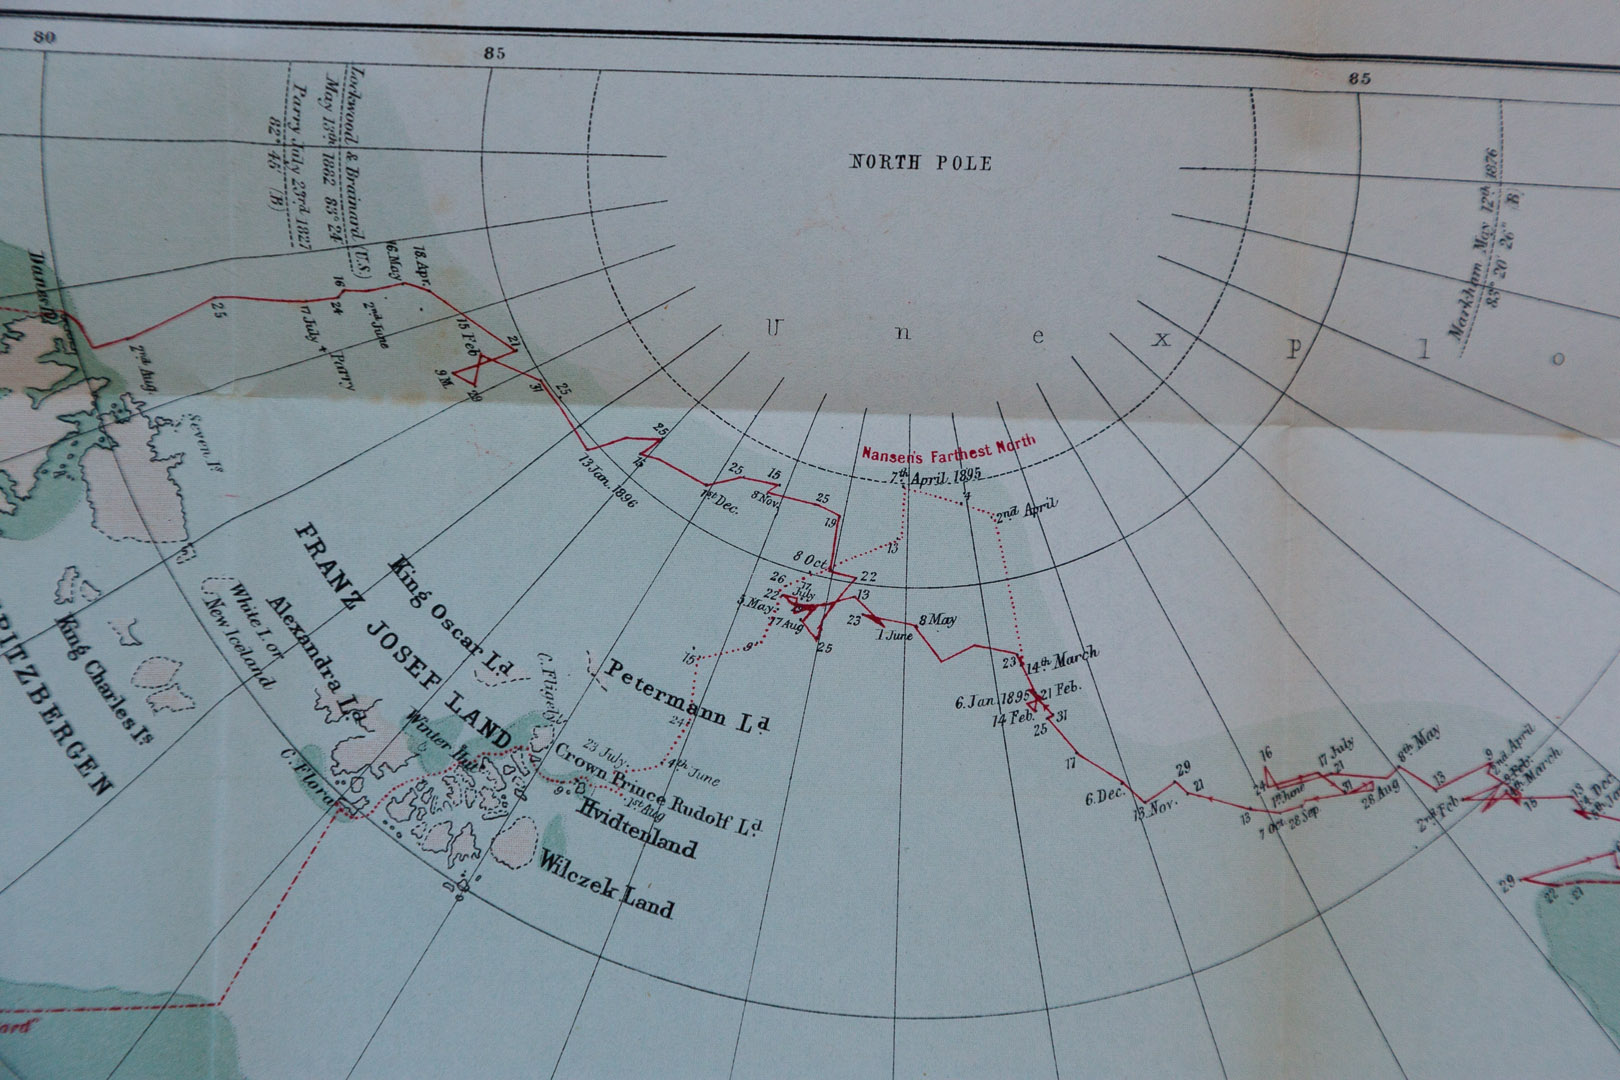 80
85
85
NORTH POLE
Lockwood & Brainard (U.S.)
May 13th 1882 83° 24'
Parry July 23rd 1827
82° 45' (B)
Markham May 12th 1876
83° 20' 26" (B)
U n e x p l o
Nansen's Farthest North
7th April 1895
4
2nd April
13
2nd Aug.
25
17 July
Parry
16
24
2nd June
6.May
18.Apr.
15 Feb.
21
9 M.
29
31
25
13 Jan. 1896
25
15
1st Dec.
25
15
8 Nov.
25
19
8 Oct.
22
13
26
17
July
22
5.May
17 Aug
25
23
1 June
8 May
9
15
24
23
14th March
6. Jan. 1895
21 Feb.
14 Feb.
31
25
17
6. Dec.
13. Nov.
29
21
13
7 Oct.
28 Sep.
16
24
1st June
17 July
21
31
28 Aug
8th May
13
9
2nd April
March
2nd Feb
15
29
22
Seven Is
SPITZBERGEN
King Charles Is
White I. or
New Iceland
FRANZ JOSEF LAND
Alexandra Ld
King Oscar Ld
Petermann Ld
C. Fligely
Winter Hut
C. Flora
23 July
4th June
Crown Prince Rudolf Ld
1st Aug
9
Hvidtenland
Wilczek Land
ard"